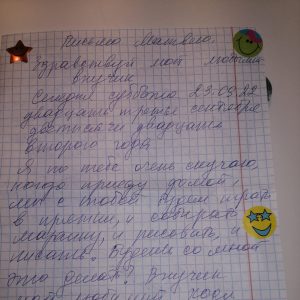 Письмо Матвею.
Здравствуй мой любимый
внучик
Сегодня суббота 23.09.22
двадцать третье сентября
две тысячи двадцать
второго года
Я по тебе очень скучаю,
когда приеду домой,
мы с тобой будем играть
в прятки, и собирать
машину, и рисовать, и
писать. Будешь со мной
это делать? Внучек
мой любимый